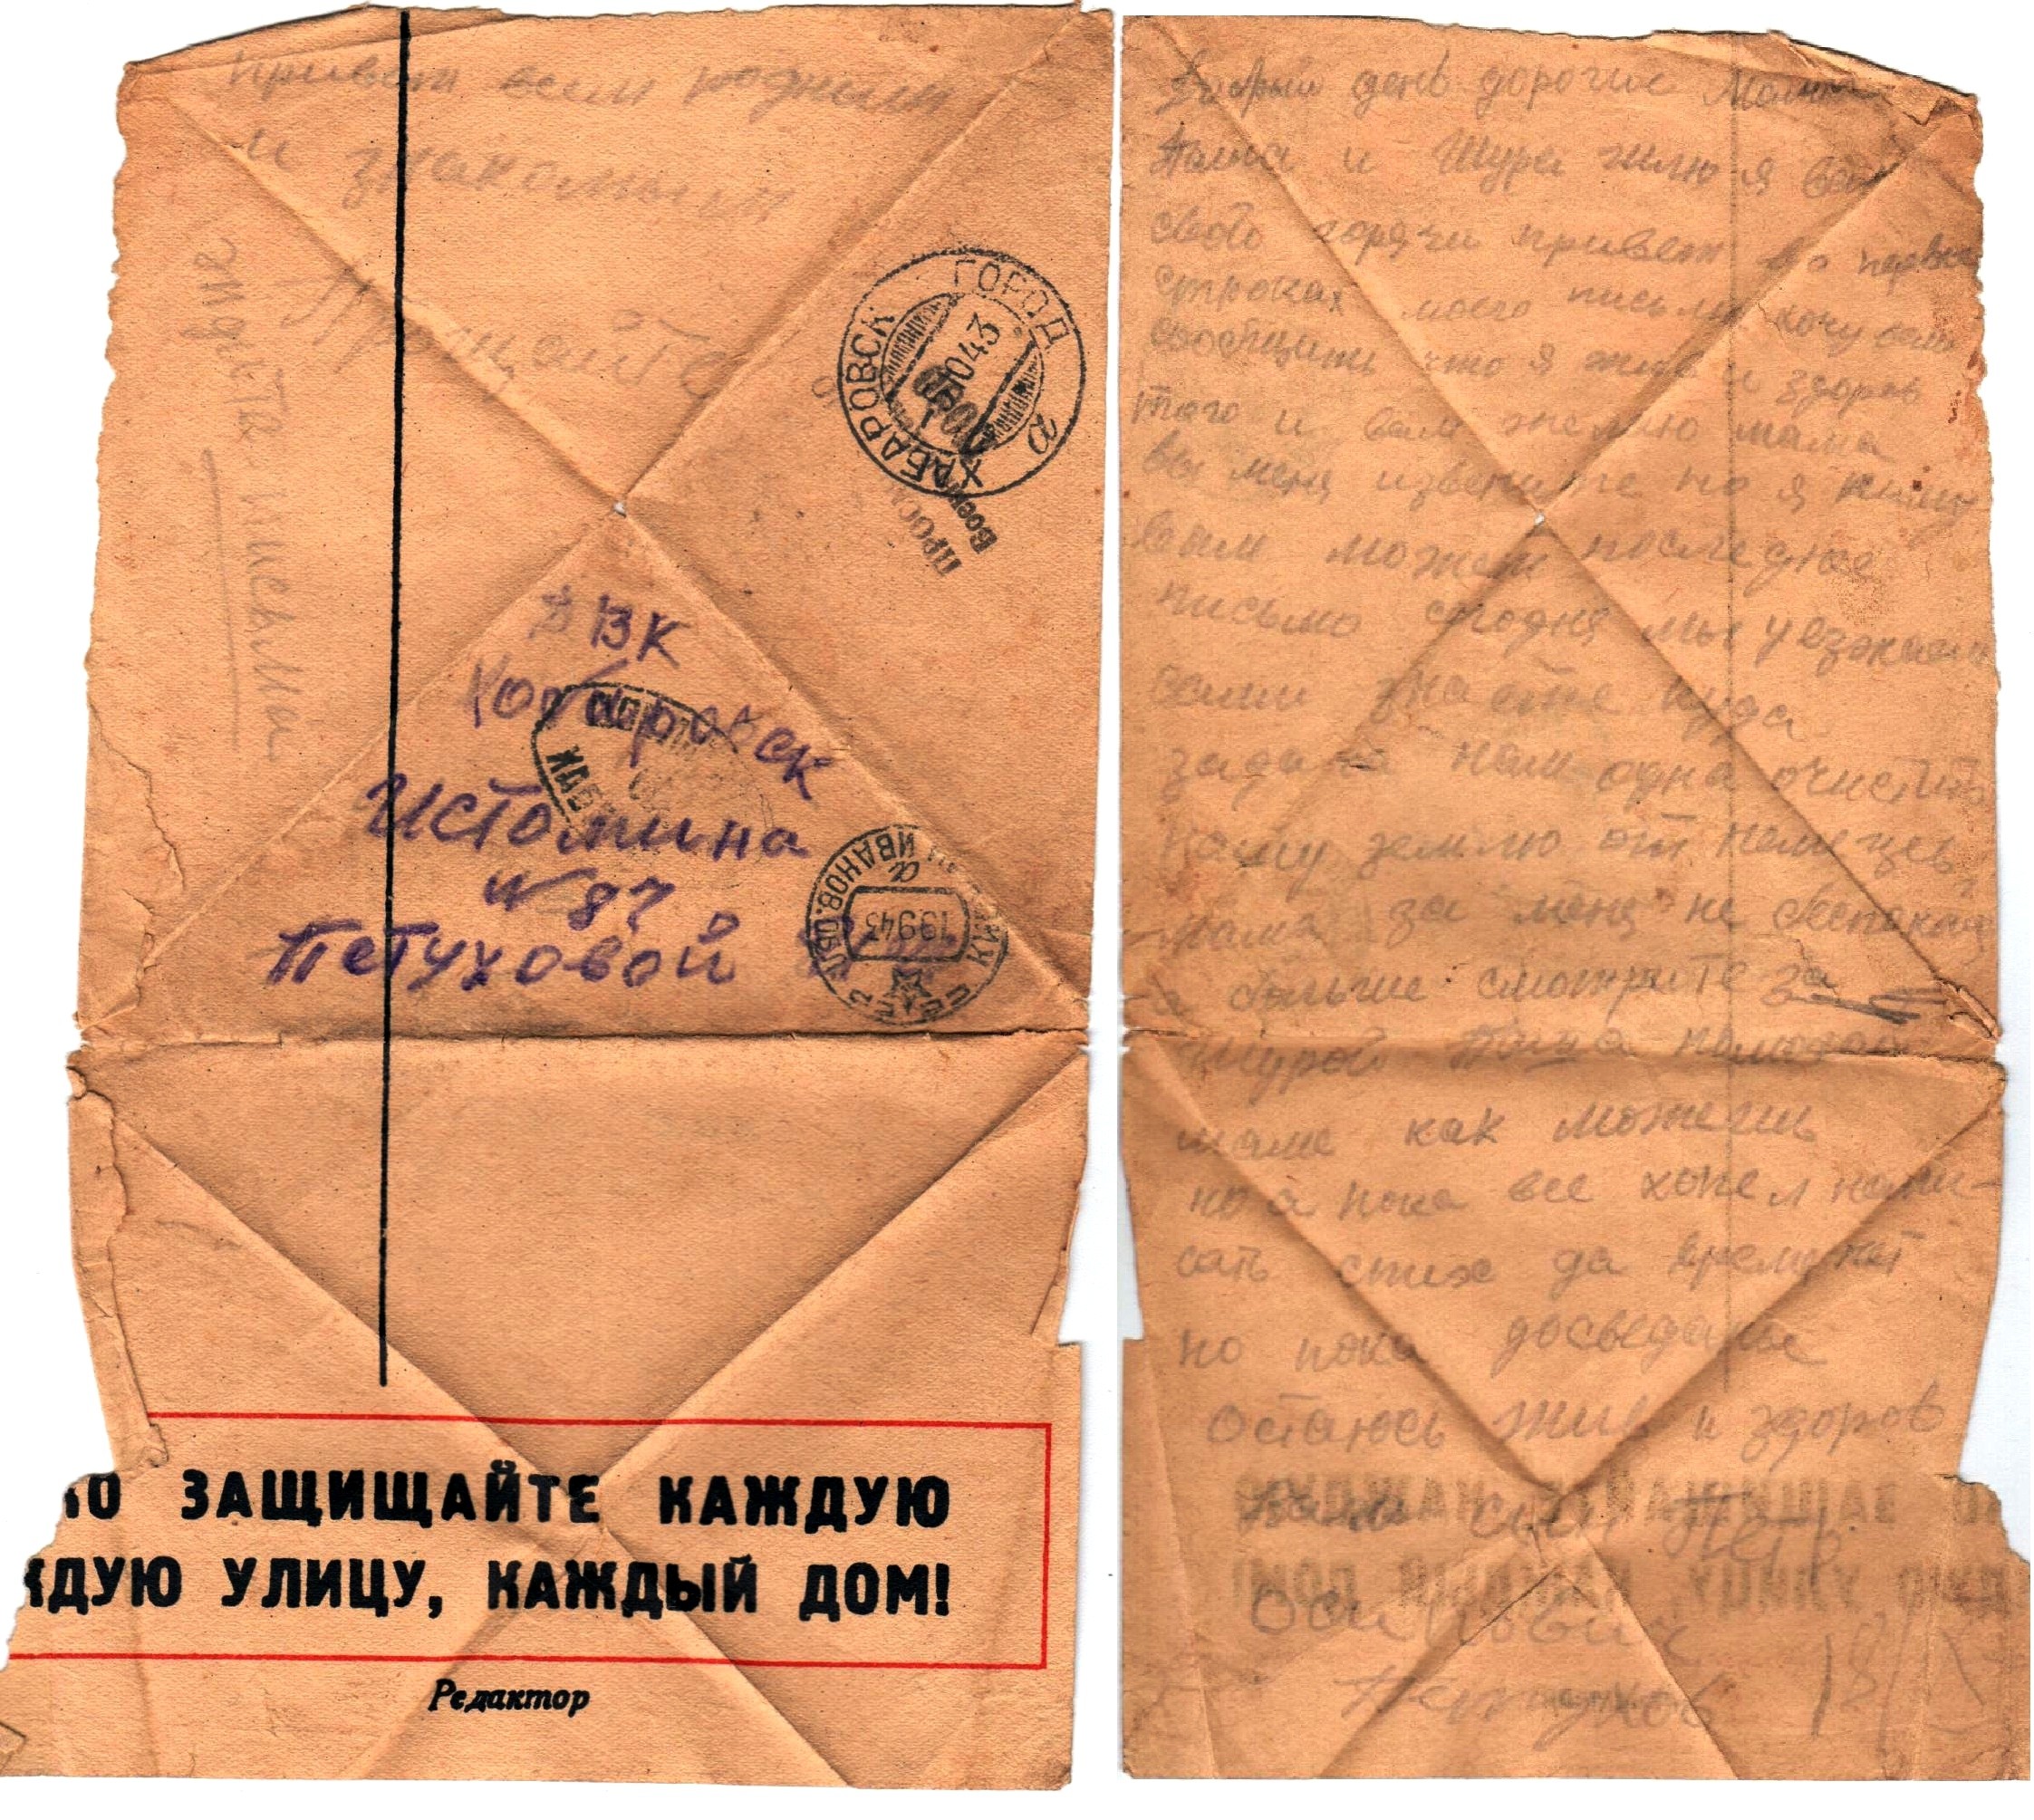 Привет всем родным
и знакомым
Прощайте
ждите письма
ХАБАРОВСК ГОРОД
10 43
ПРОС
Воен
ДВК
Хабаровск
Истомина
№ 87
Петуховой
ИВАНОВ. ОБЛ
19 9 43
ЗАЩИЩАЙТЕ КАЖДУЮ
УЛИЦУ, КАЖДЫЙ ДОМ!
Редактор
Добрый день дорогие Мама
Паша и Шура шлю я вам
свой горячи привет во первых
строках моего письма хочу вам
сообщить что я жив и здоров
того и вам желаю мама
вы меня извените но я пишу
вам может последнее
письмо сегодня мы уезжаем
сами знаете куда
задача нам одна очистить
нашу землю от немцев,
мама за меня не беспокой
а больше смотрите за
Шурой Паша помогай
маме как можешь
но а пока все хотел напи-
сать стих да время нет
но пока досведания
Остаюсь жив и здоров
ваш сын Петр
Осипович
Петухов 18/